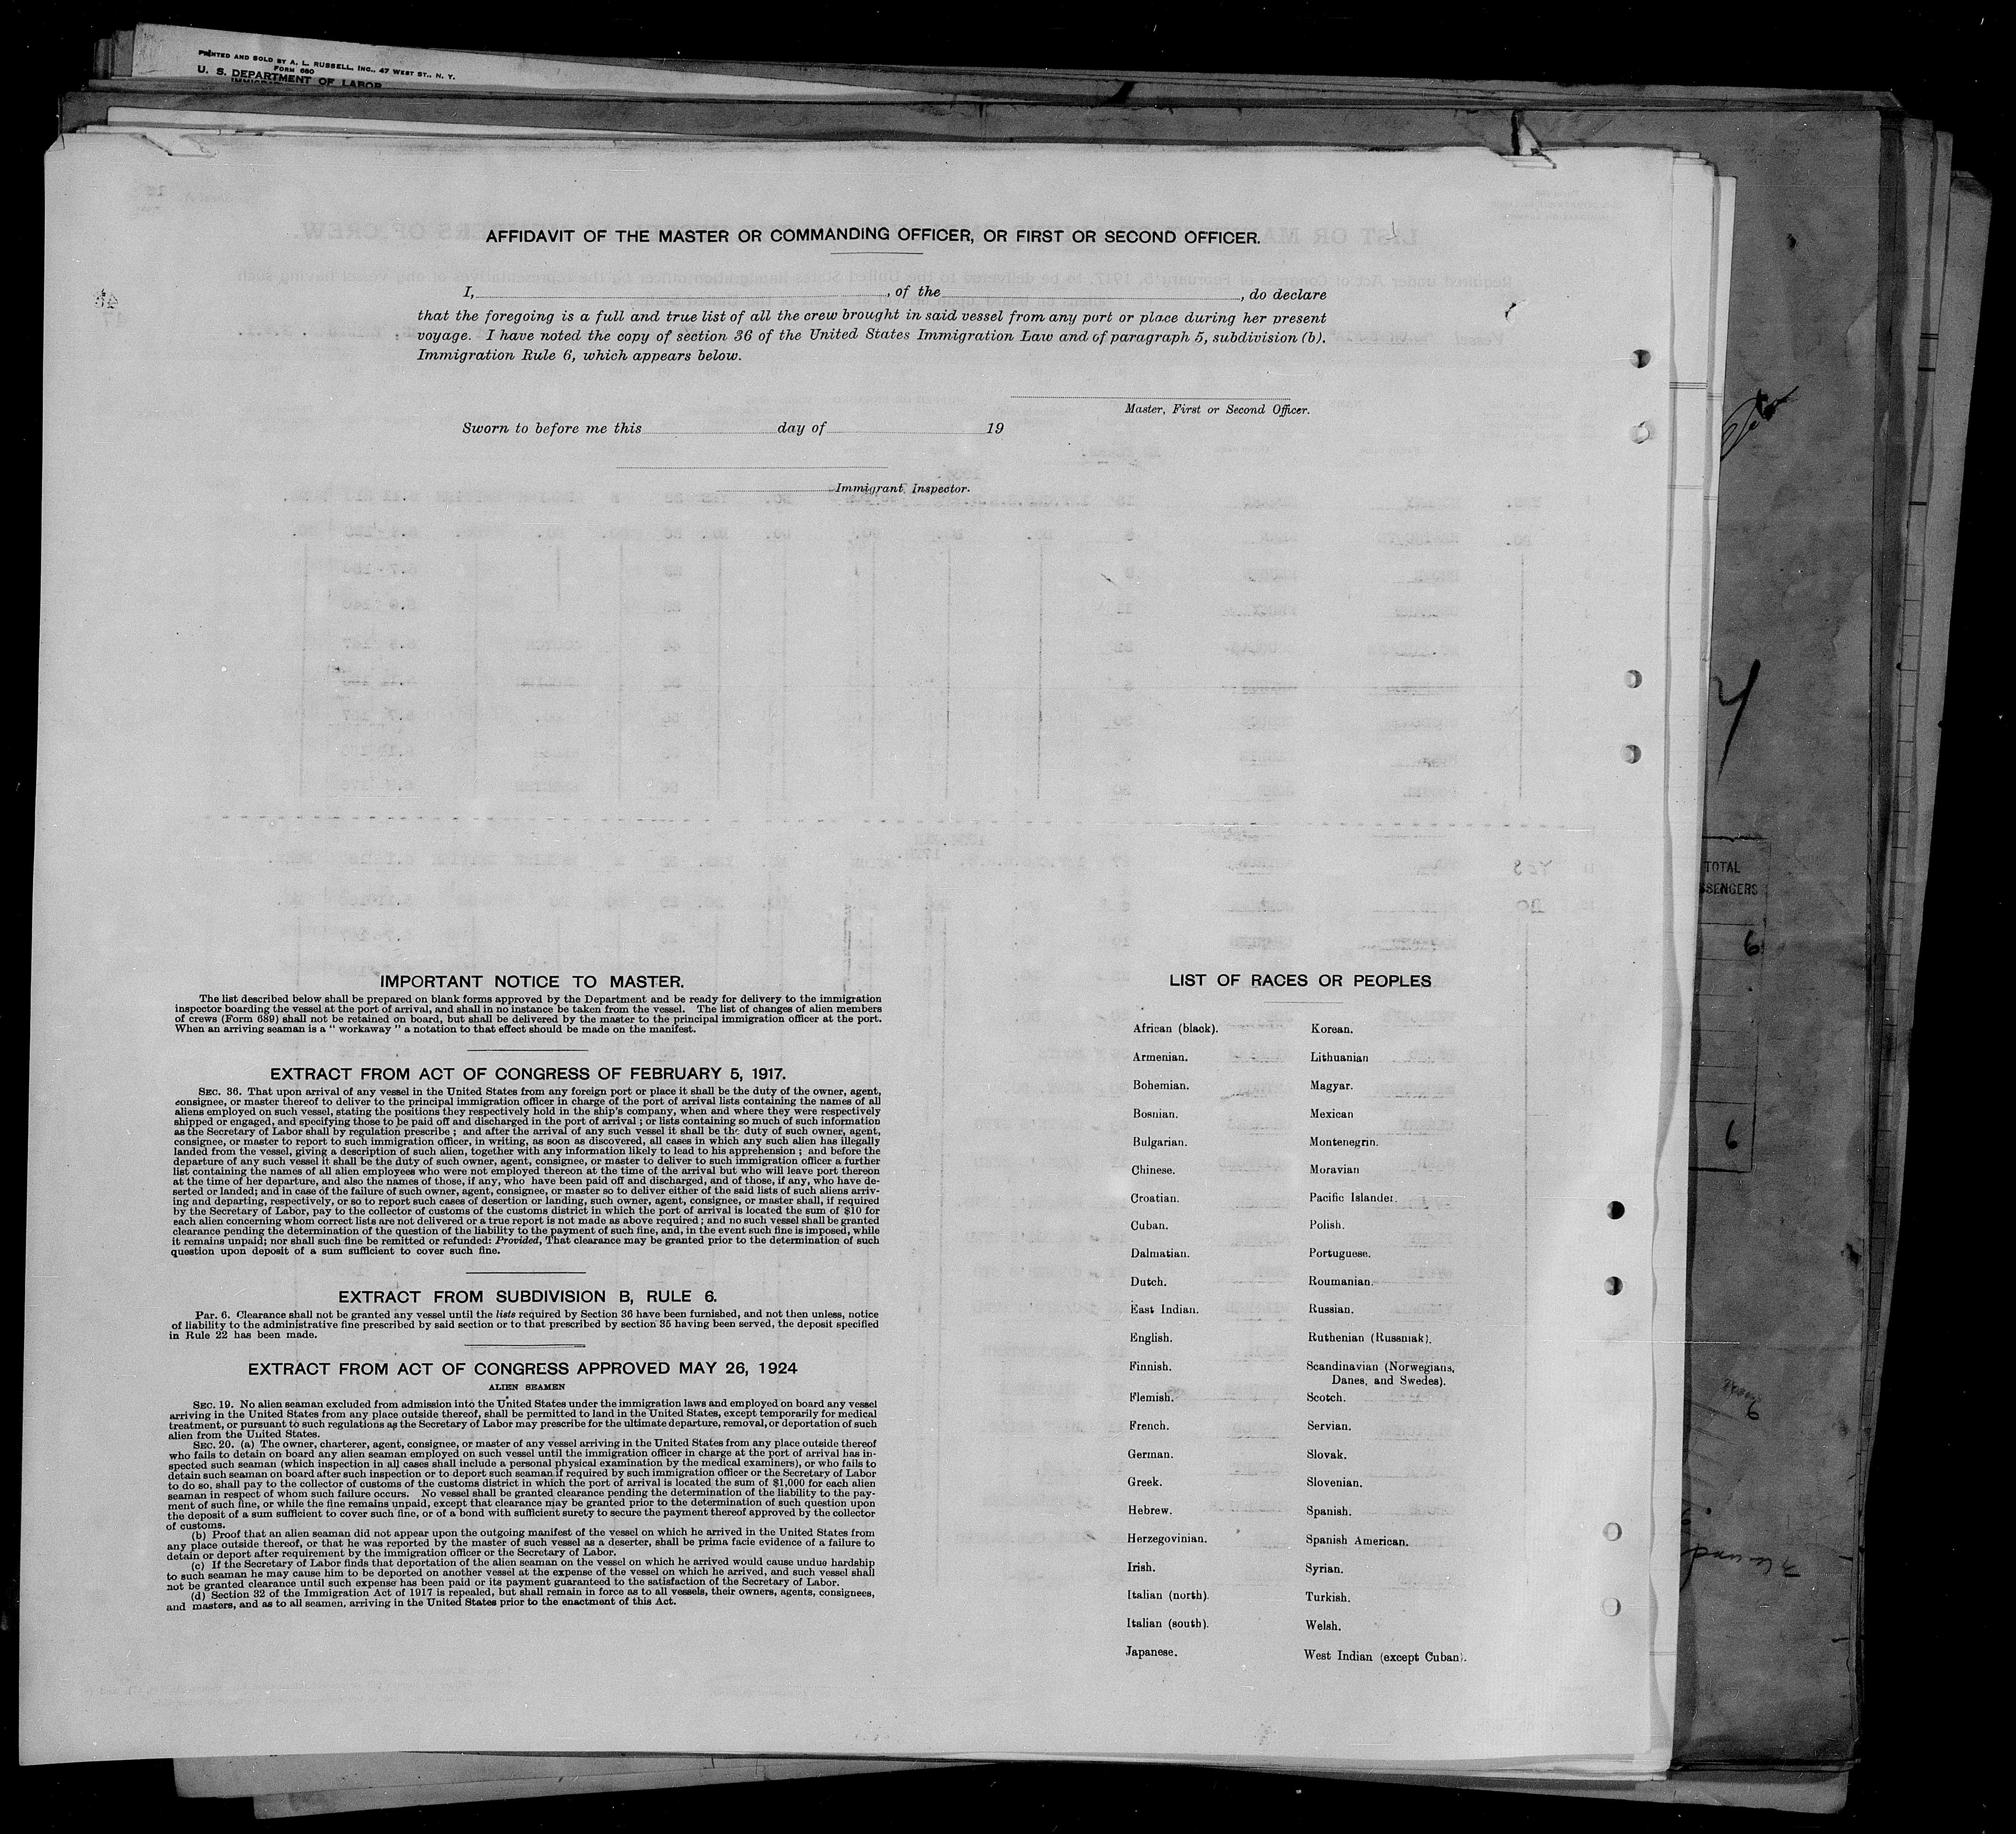 PRINTED AND SOLD BY A. L. RUSSELL, INC., 47 WEST ST., N. Y.
FORM 680
U. S. DEPARTMENT OF LABOR
AFFIDAVIT OF THE MASTER OR COMMANDING OFFICER, OR FIRST OR SECOND OFFICER.
I, , of the , do declare
that the foregoing is a full and true list of all the crew brought in said vessel from any port or place during her present
voyage. I have noted the copy of section 36 of the United States Immigration Law and of paragraph 5, subdivision (b).
Immigration Rule 6, which appears below.
Master, First or Second Officer.
Sworn to before me this day of 19
Immigrant Inspector.
IMPORTANT NOTICE TO MASTER.
The list described below shall be prepared on blank forms approved by the Department and be ready for delivery to the immigration
inspector boarding the vessel at the port of arrival, and shall in no instance be taken from the vessel. The list of changes of alien members
of crews (Form 689) shall not be retained on board, but shall be delivered by the master to the principal immigration officer at the port.
When an arriving seaman is a " workaway " a notation to that effect should be made on the manifest.
EXTRACT FROM ACT OF CONGRESS OF FEBRUARY 5, 1917.
SEC. 36. That upon arrival of any vessel in the United States from any foreign port or place it shall be the duty of the owner, agent,
consignee, or master thereof to deliver to the principal immigration officer in charge of the port of arrival lists containing the names of all
aliens employed on such vessel, stating the positions they respectively hold in the ship's company, when and where they were respectively
shipped or engaged, and specifying those to be paid off and discharged in the port of arrival ; or lists containing so much of such information
as the Secretary of Labor shall by regulation prescribe ; and after the arrival of any such vessel it shall be the duty of such owner, agent,
consignee, or master to report to such immigration officer, in writing, as soon as discovered, all cases in which any such alien has illegally
landed from the vessel, giving a description of such alien, together with any information likely to lead to his apprehension ; and before the
departure of any such vessel it shall be the duty of such owner, agent, consignee, or master to deliver to such immigration officer a further
list containing the names of all alien employees who were not employed thereon at the time of the arrival but who will leave port thereon
at the time of her departure, and also the names of those, if any, who have been paid off and discharged, and of those, if any, who have de-
serted or landed; and in case of the failure of such owner, agent, consignee, or master so to deliver either of the said lists of such aliens arriv-
ing and departing, respectively, or so to report such cases of desertion or landing, such owner, agent, consignee, or master shall, if required
by the Secretary of Labor, pay to the collector of customs of the customs district in which the port of arrival is located the sum of $10 for
each alien concerning whom correct lists are not delivered or a true report is not made as above required ; and no such vessel shall be granted
clearance pending the determination of the question of the liability to the payment of such fine, and, in the event such fine is imposed, while
it remains unpaid; nor shall such fine be remitted or refunded: Provided, That clearance may be granted prior to the determination of such
question upon deposit of a sum sufficient to cover such fine.
EXTRACT FROM SUBDIVISION B, RULE 6.
Par. 6. Clearance shall not be granted any vessel until the lists required by Section 36 have been furnished, and not then unless, notice
of liability to the administrative fine prescribed by said section or to that prescribed by section 35 having been served, the deposit specified
in Rule 22 has been made.
EXTRACT FROM ACT OF CONGRESS APPROVED MAY 26, 1924
ALIEN SEAMEN
SEC. 19. No alien seaman excluded from admission into the United States under the immigration laws and employed on board any vessel
arriving in the United States from any place outside thereof, shall be permitted to land in the United States, except temporarily for medical
treatment, or pursuant to such regulations as the Secretary of Labor may prescribe for the ultimate departure, removal, or deportation of such
alien from the United States.
SEC. 20. (a) The owner, charterer, agent, consignee, or master of any vessel arriving in the United States from any place outside thereof
who fails to detain on board any alien seaman employed on such vessel until the immigration officer in charge at the port of arrival has in-
spected such seaman (which inspection in all cases shall include a personal physical examination by the medical examiners), or who fails to
detain such seaman on board after such inspection or to deport such seaman if required by such immigration officer or the Secretary of Labor
to do so, shall pay to the collector of customs of the customs district in which the port of arrival is located the sum of $1,000 for each alien
seaman in respect of whom such failure occurs. No vessel shall be granted clearance pending the determination of the liability to the pay-
ment of such fine, or while the fine remains unpaid, except that clearance may be granted prior to the determination of such question upon
the deposit of a sum sufficient to cover such fine, or of a bond with sufficient surety to secure the payment thereof approved by the collector
of customs.
(b) Proof that an alien seaman did not appear upon the outgoing manifest of the vessel on which he arrived in the United States from
any place outside thereof, or that he was reported by the master of such vessel as a deserter, shall be prima facie evidence of a failure to
detain or deport after requirement by the immigration officer or the Secretary of Labor.
(c) If the Secretary of Labor finds that deportation of the alien seaman on the vessel on which he arrived would cause undue hardship
to such seaman he may cause him to be deported on another vessel at the expense of the vessel on which he arrived, and such vessel shall
not be granted clearance until such expense has been paid or its payment guaranteed to the satisfaction of the Secretary of Labor.
(d) Section 32 of the Immigration Act of 1917 is repealed, but shall remain in force as to all vessels, their owners, agents, consignees,
and masters, and as to all seamen, arriving in the United States prior to the enactment of this Act.
LIST OF RACES OR PEOPLES
African (black). Korean.
Armenian. Lithuanian
Bohemian. Magyar.
Bosnian. Mexican
Bulgarian. Montenegrin.
Chinese. Moravian
Croatian. Pacific Islander.
Cuban. Polish.
Dalmatian. Portuguese.
Dutch. Roumanian.
East Indian. Russian.
English. Ruthenian (Russniak).
Finnish. Scandinavian (Norwegians,
Danes, and Swedes).
Flemish. Scotch.
French. Servian.
German. Slovak.
Greek. Slovenian.
Hebrew. Spanish.
Herzegovinian. Spanish American.
Irish. Syrian.
Italian (north). Turkish.
Italian (south). Welsh.
Japanese. West Indian (except Cuban).
TOTAL
SSENGERS
6
6